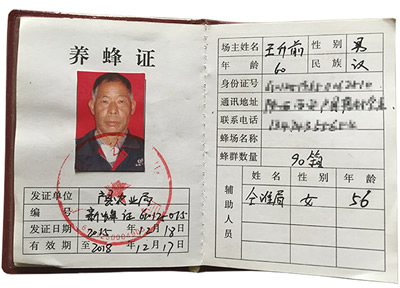 养蜂证
发证单位 县农业局
编 号
发证日期 2015 年 12 月 18 日
有 效 期 至 2018 年 12 月 17 日
场主姓名 王升前 性 别 男
年 龄 60 民 族 汉
身份证号
通讯地址
联系电话
蜂场名称
蜂群数量 90箱
辅助人员
姓 名 性 别 年 龄
女 56